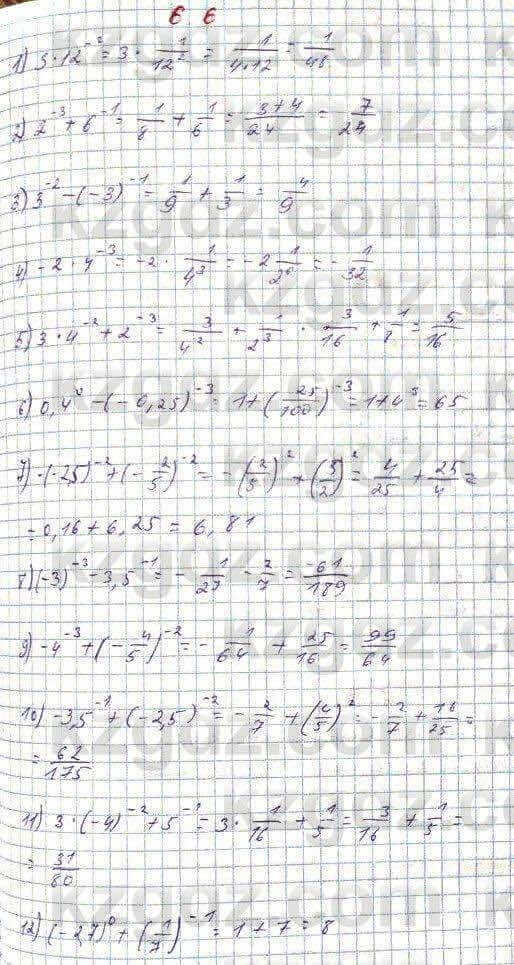 66
1) 3·12⁻² = 3 · 1/12² = 1/(4·12) = 1/48
2) 2⁻³ + 6⁻¹ = 1/8 + 1/6 = (3+4)/24 = 7/24
3) 3⁻² - (-3)⁻¹ = 1/9 + 1/3 = 4/9
4) -2 · 4⁻³ = -2 · 1/4³ = -2 1/2⁶ = - 1/32
5) 3 · 4⁻² + 2⁻³ = 3/4² + 1/2³ · 3/16 + 1/8 = 5/16
6) 0,4⁰ - (-0,25)⁻³ = 1 + (25/100)⁻³ = 1 + 4³ = 65
7) -(-2,5)⁻² + (-2/5)⁻² = -(2/5)² + (5/2)² = 4/25 + 25/4 =
= 0,16 + 6,25 = 6,81
8) (-3)⁻³ - 3,5⁻¹ = - 1/27 - 2/7 = -61/189
9) -4⁻³ + (-4/5)⁻² = - 1/64 + 25/16 = 99/64
10) -3,5⁻¹ + (-2,5)⁻² = - 2/7 + (4/5)² = - 2/7 + 16/25 =
= 62/175
11) 3 · (-4)⁻² + 5⁻¹ = 3 · 1/16 + 1/5 = 3/16 + 1/5 =
= 31/80
12) (-2,7)⁰ + (1/7)⁻¹ = 1 + 7 = 8
kzgdz.com